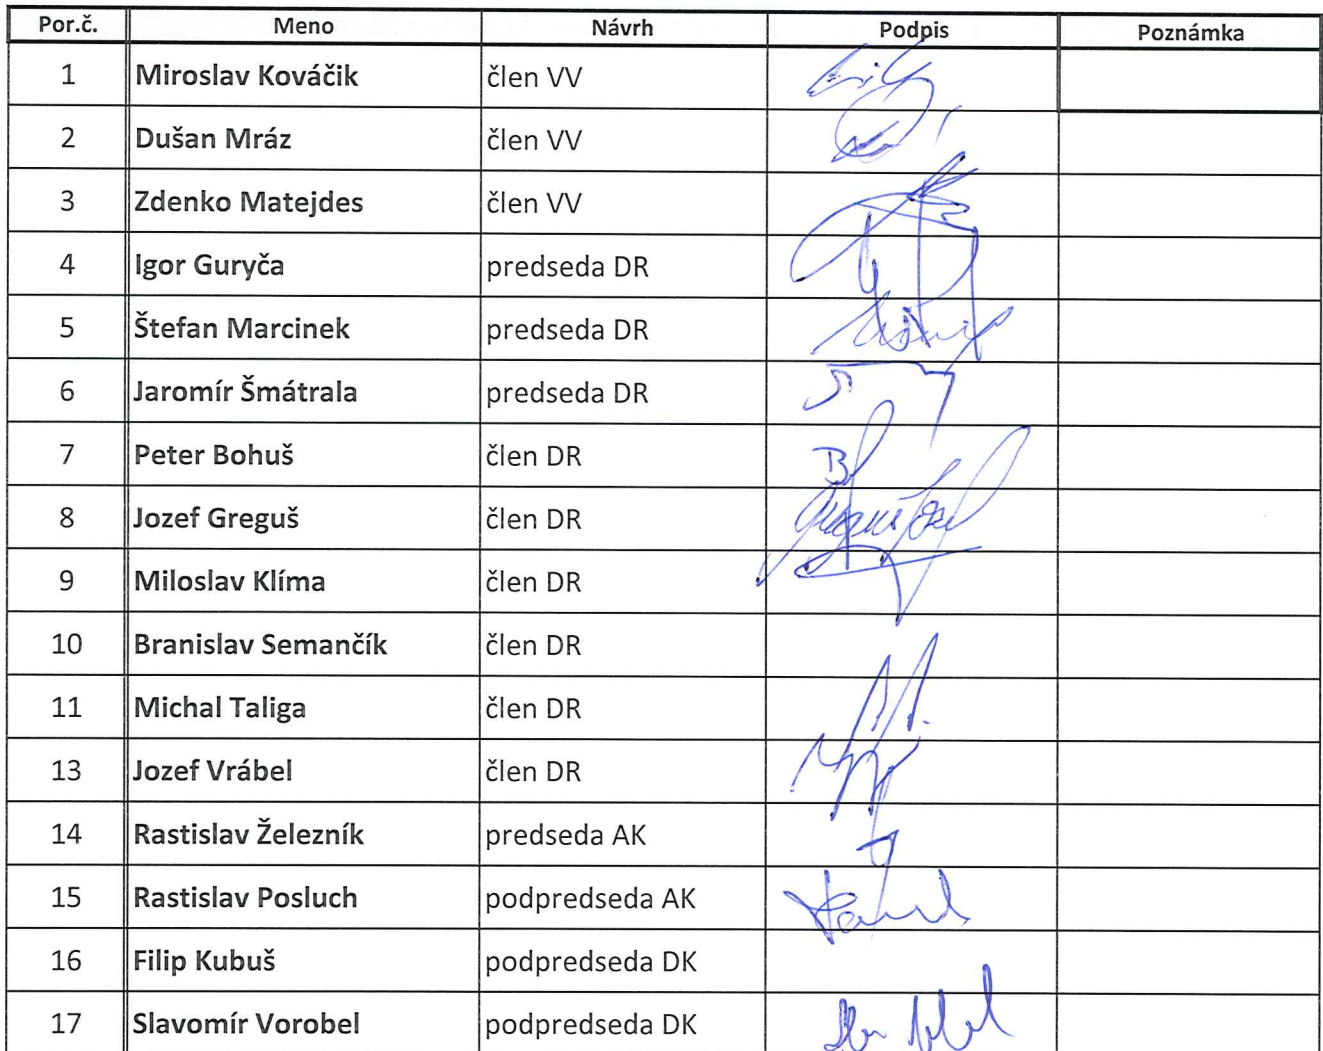 Por.č. Meno Návrh Podpis Poznámka
1 Miroslav Kováčik člen VV
2 Dušan Mráz člen VV
3 Zdenko Matejdes člen VV
4 Igor Guryča predseda DR
5 Štefan Marcinek predseda DR
6 Jaromír Šmátrala predseda DR
7 Peter Bohuš člen DR
8 Jozef Greguš člen DR
9 Miloslav Klíma člen DR
10 Branislav Semančík člen DR
11 Michal Taliga člen DR
13 Jozef Vrábel člen DR
14 Rastislav Železník predseda AK
15 Rastislav Posluch podpredseda AK
16 Filip Kubuš podpredseda DK
17 Slavomír Vorobel podpredseda DK